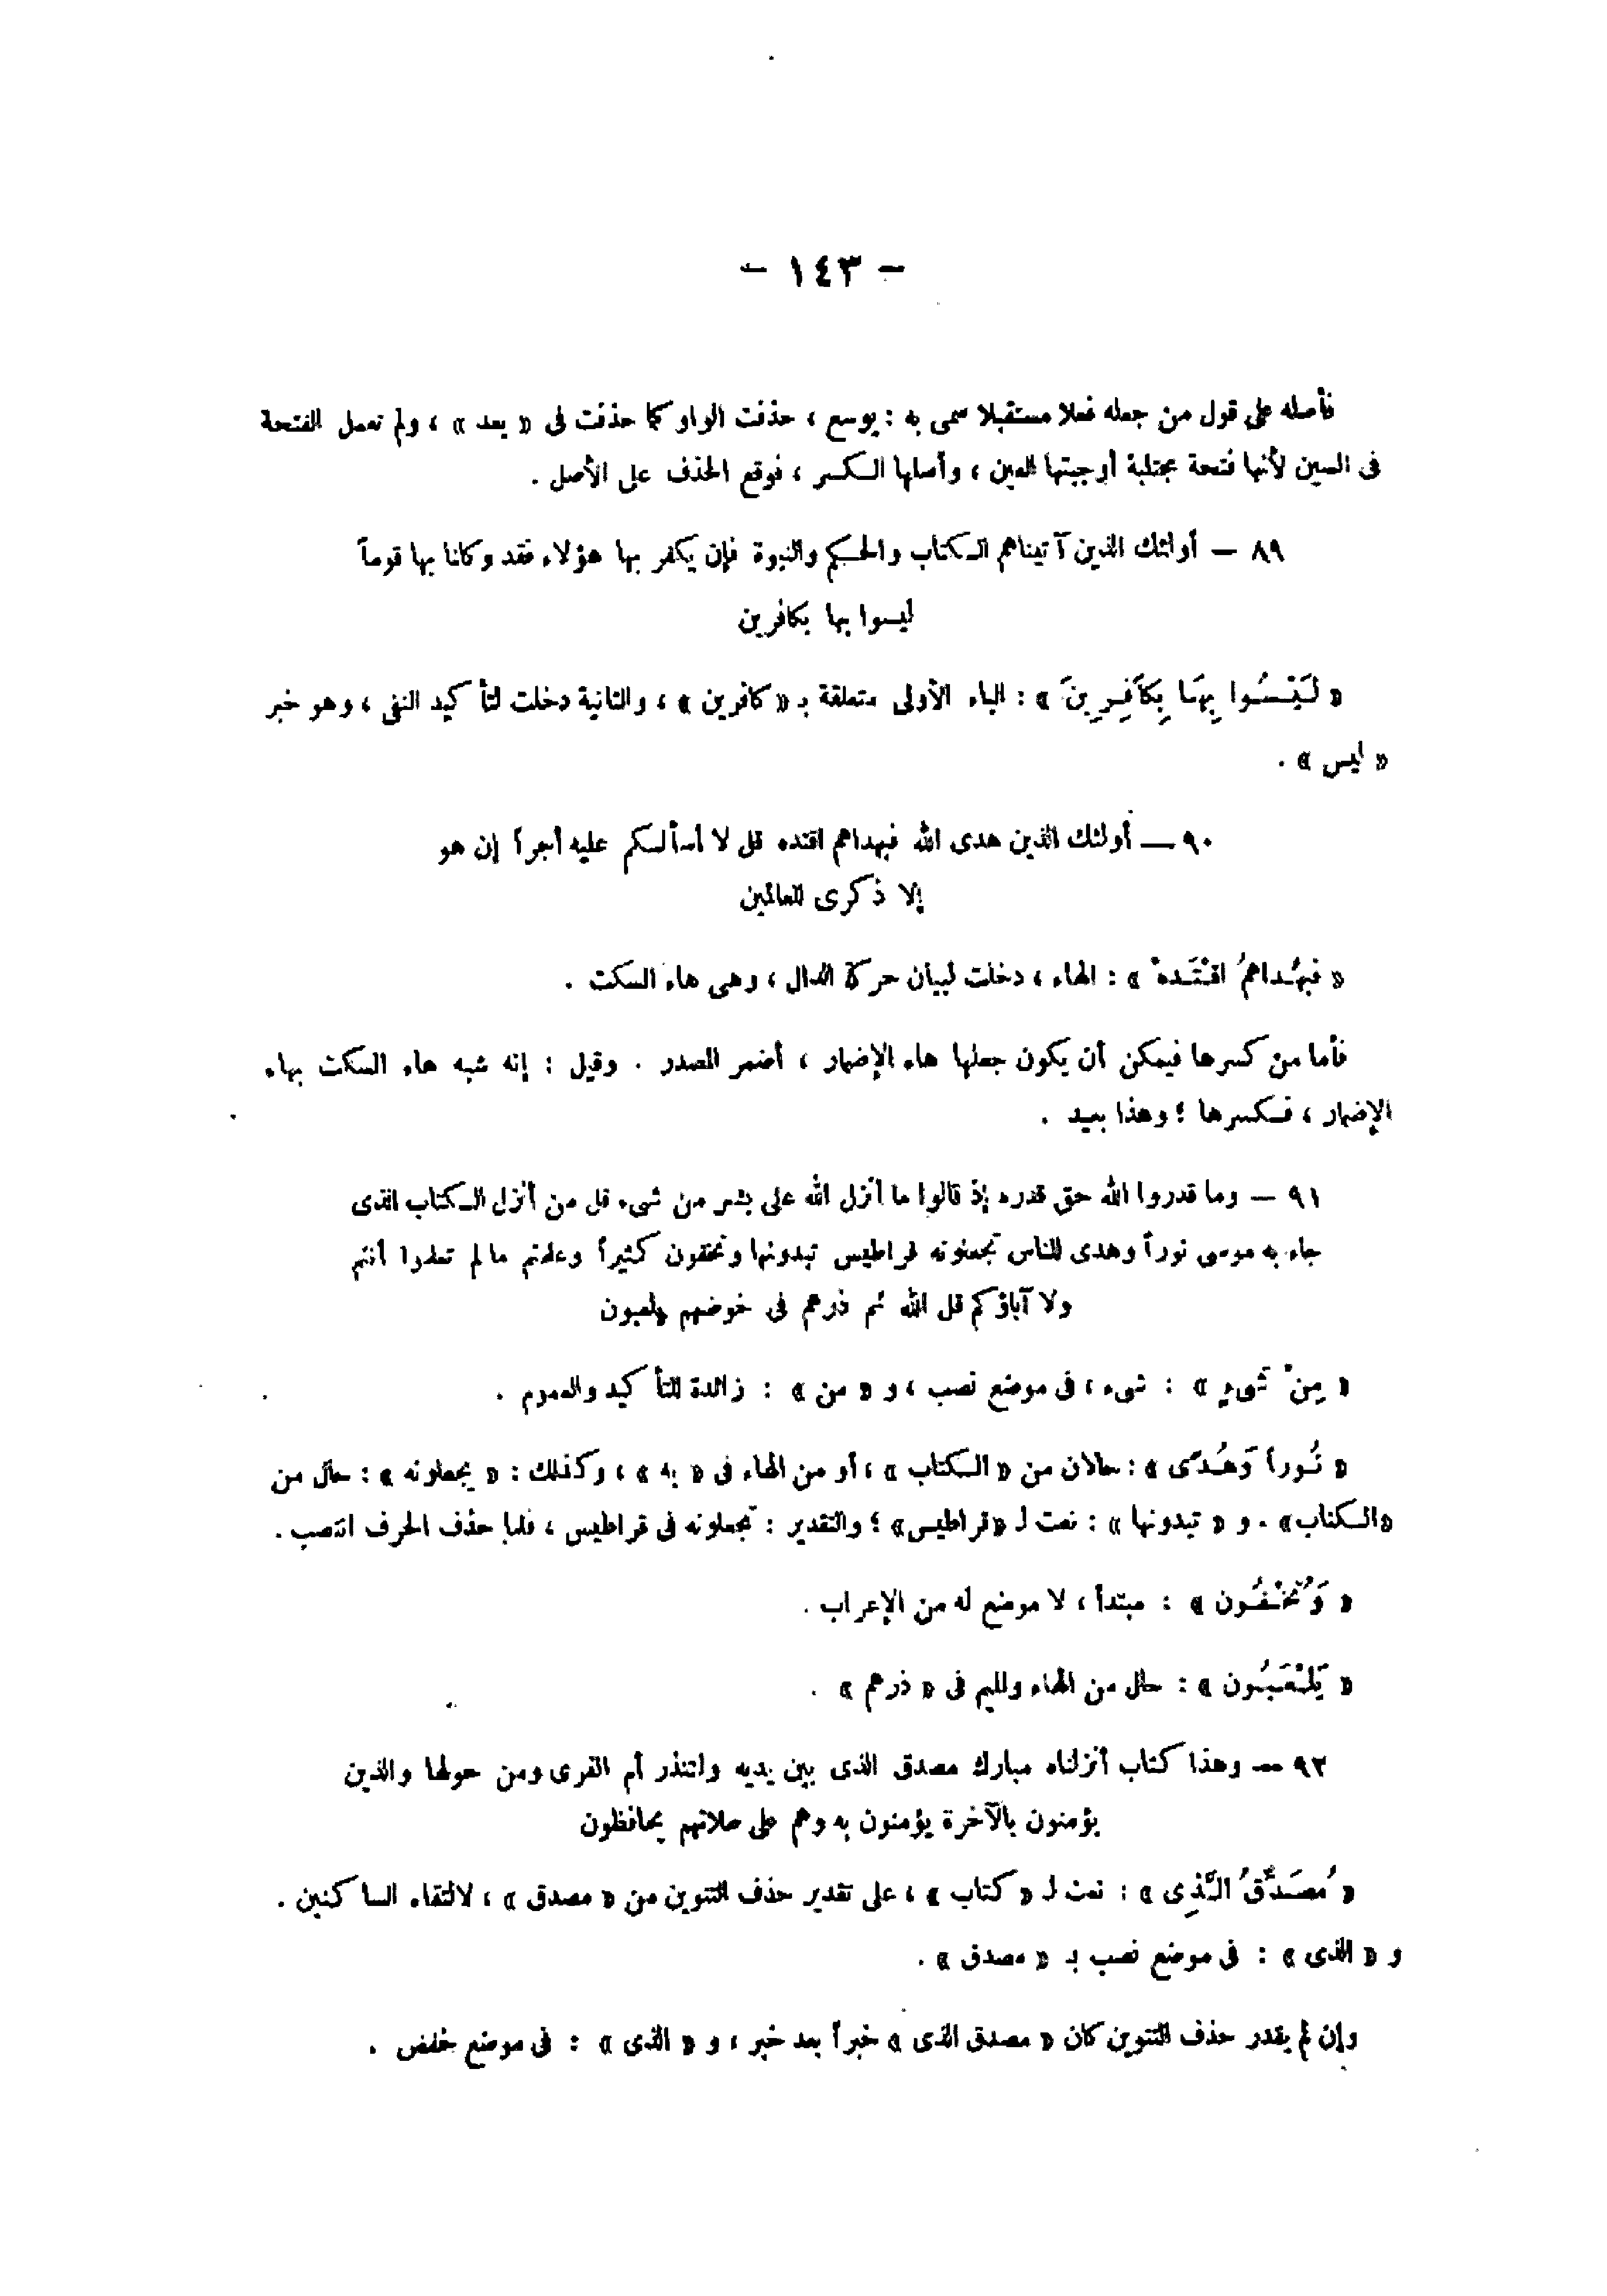 — ١٤٣ —
فأصله على قول من جعله فعلا مستقبلا سمى به : يوسع ، حذفت الواو كما حذفت فى « يعد » ، ولم تعمل الفتحة
فى السين لأنها فتحة مجتلبة أوجبتها العين ، وأصلها الكسر ، فوقع الحذف على الأصل .
٨٩ — أولئك الذين آتيناهم الكتاب والحكم والنبوة فإن يكفر بها هؤلاء فقد وكلنا بها قوماً
ليسوا بها بكافرين
« لَيْسُوا بِهَا بِكَافِرِينَ » : الباء الأولى متعلقة بـ « كافرين » ، والثانية دخلت لتأكيد النفى ، وهو خبر
« ليس » .
٩٠ — أولئك الذين هدى الله فبهداهم اقتده قل لا أسألكم عليه أجراً إن هو
إلا ذكرى للعالمين
« فبهُداهمُ اقْتَدهْ » : الهاء ، دخلت لبيان حركة الدال ، وهى هاء السكت .
فأما من كسرها فيمكن أن يكون جعلها هاء الإضمار ، أضمر المصدر . وقيل : إنه شبه هاء السكت بهاء
الإضمار ، فكسرها ؛ وهذا بعيد .
٩١ — وما قدروا الله حق قدره إذ قالوا ما أنزل الله على بشر من شىء قل من أنزل الكتاب الذى
جاء به موسى نوراً وهدى للناس تجعلونه قراطيس تبدونها وتخفون كثيراً وعلمتم مالم تعلموا أنتم
ولا آباؤكم قل الله ثم ذرهم فى خوضهم يلعبون
« مِنْ شَىءٍ » : شىء ، فى موضع نصب ، و « من » : زائدة للتأكيد والعموم .
« نُوراً وَهُدًى » : حالان من « الكتاب » ، أو من الهاء فى « به » ، وكذلك : « يجعلونه » : حال من
«الكتاب» . و « تبدونها » : نعت لـ «قراطيس» ؛ والتقدير : تجعلونه فى قراطيس ، فلما حذف الحرف انتصب .
« وَتُخْفُون » : مبتدأ ، لا موضع له من الإعراب .
« يَلْعَبُون » : حال من الهاء والميم فى « ذرهم » .
٩٢ — وهذا كتاب أنزلناه مبارك مصدق الذى بين يديه ولتنذر أم القرى ومن حولها والذين
يؤمنون بالآخرة يؤمنون به وهم على صلاتهم يحافظون
« مُصَدِّقُ الَّذِى » : نعت لـ « كتاب » ، على تقدير حذف التنوين من « مصدق » ، لالتقاء الساكنين .
و « الذى » : فى موضع نصب بـ « مصدق » .
وإن لم يقدر حذف التنوين كان « مصدق الذى » خبراً بعد خبر ، و « الذى » : فى موضع خفض .